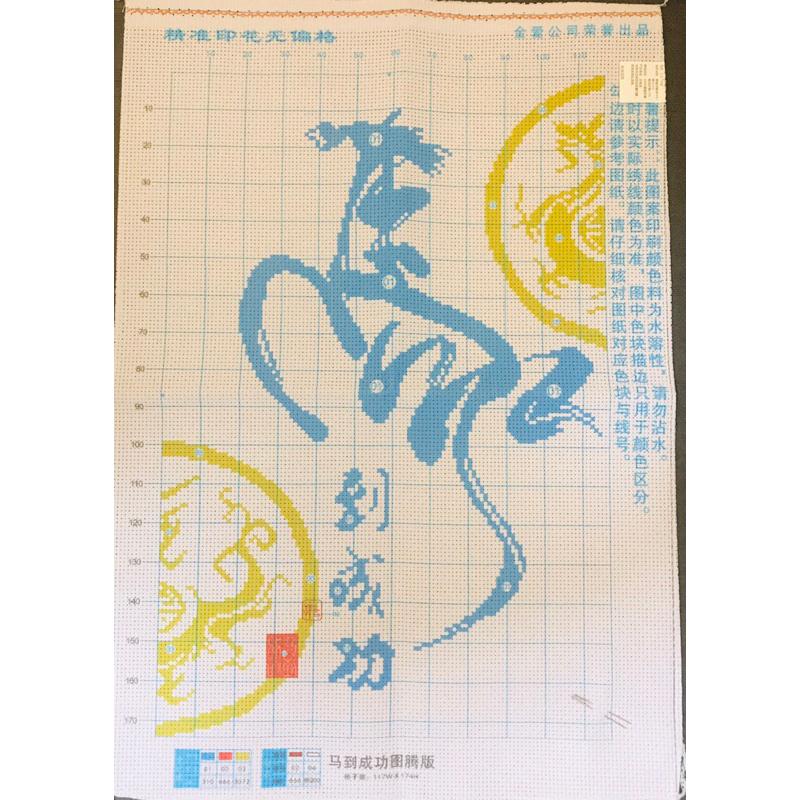 精准印花无偏格
全爱公司荣誉出品
10 20 30 40 50 60 70 80 90 100 110
10
20
30
40
50
60
70
80
90
100
110
120
130
140
150
160
170
温馨提示：此图案印刷颜色料为水溶性，请勿沾水。
时以实际绣线颜色为准，图中色块描边只用于颜色区分。
勾边请参考图纸。请仔细核对图纸对应色块与线号。
到
成
功
01 02 03
310 666 3072
马到成功图腾版
格子数：117W×174H